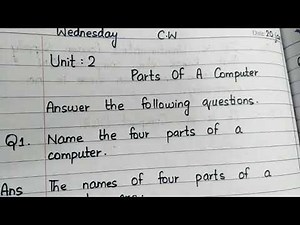 Wednesday C.W Date: 20
Unit : 2
Parts Of A Computer
Answer the following questions.
Q1. Name the four parts of a
computer.
Ans The names of four parts of a